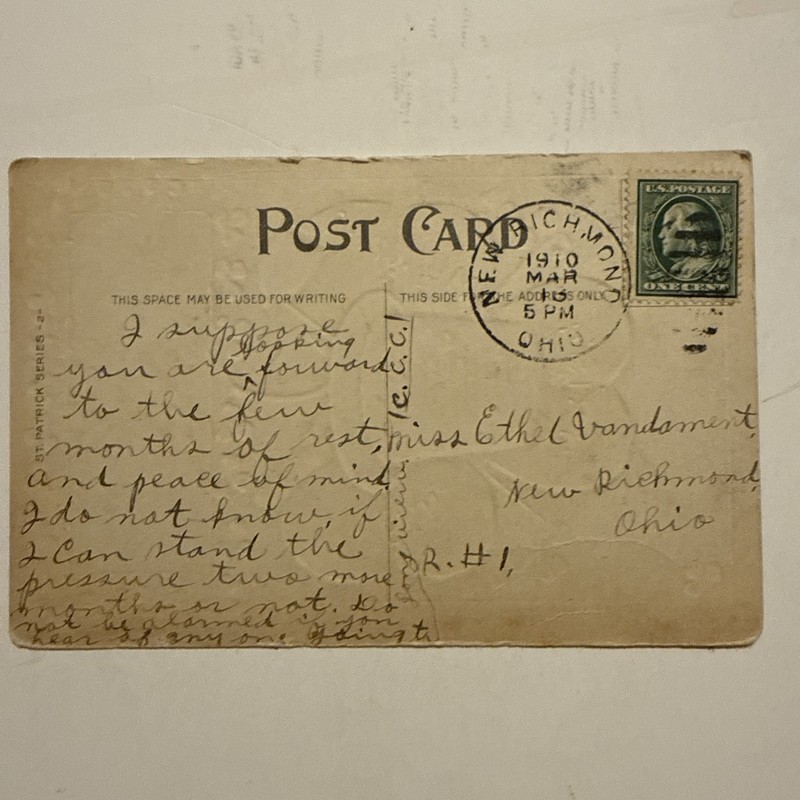 POST CARD
THIS SPACE MAY BE USED FOR WRITING
THIS SIDE FOR THE ADDRESS ONLY
ST. PATRICK SERIES -2-
NEW RICHMOND
1910
MAR
5 PM
OHIO
U.S. POSTAGE
ONE CENT
I suppose
looking
you are ^ forward
to the few
months of rest,
and peace of mind.
I do not know, if
I can stand the
pressure two more
months or not. Do
not be alarmed if you
hear of any one going to
(C. C. C.)
Miss Ethel Vandament,
New Richmond,
Ohio
R. #1,